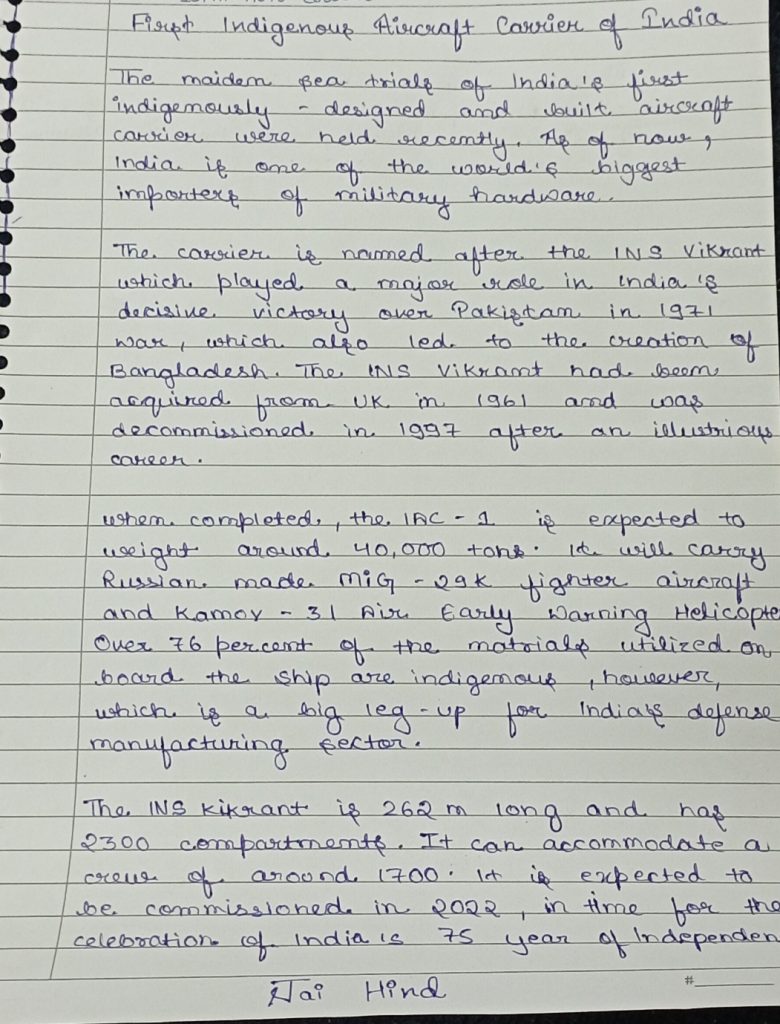 First Indigenous Aircraft Carrier of India
The maiden sea trials of India's first
indigenously - designed and built aircraft
carrier were held recently. As of now,
India is one of the world's biggest
importers of military hardware.
The carrier is named after the INS Vikrant
which played a major role in India's
decisive victory over Pakistan in 1971
war, which also led to the creation of
Bangladesh. The INS Vikrant had been
acquired from UK in 1961 and was
decommissioned in 1997 after an illustrious
career.
when completed, the IAC - 1 is expected to
weight around 40,000 tons. It will carry
Russian made MiG - 29K fighter aircraft
and Kamov - 31 Air Early Warning Helicopte
Over 76 percent of the matrials utilized on
board the ship are indigenous, however,
which is a big leg-up for India's defense
manufacturing sector.
The INS Kikrant is 262 m long and has
2300 compartments. It can accommodate a
crew of around 1700. It is expected to
be commissioned in 2022, in time for the
celebration of India is 75 year of Independen
Jai Hind
#